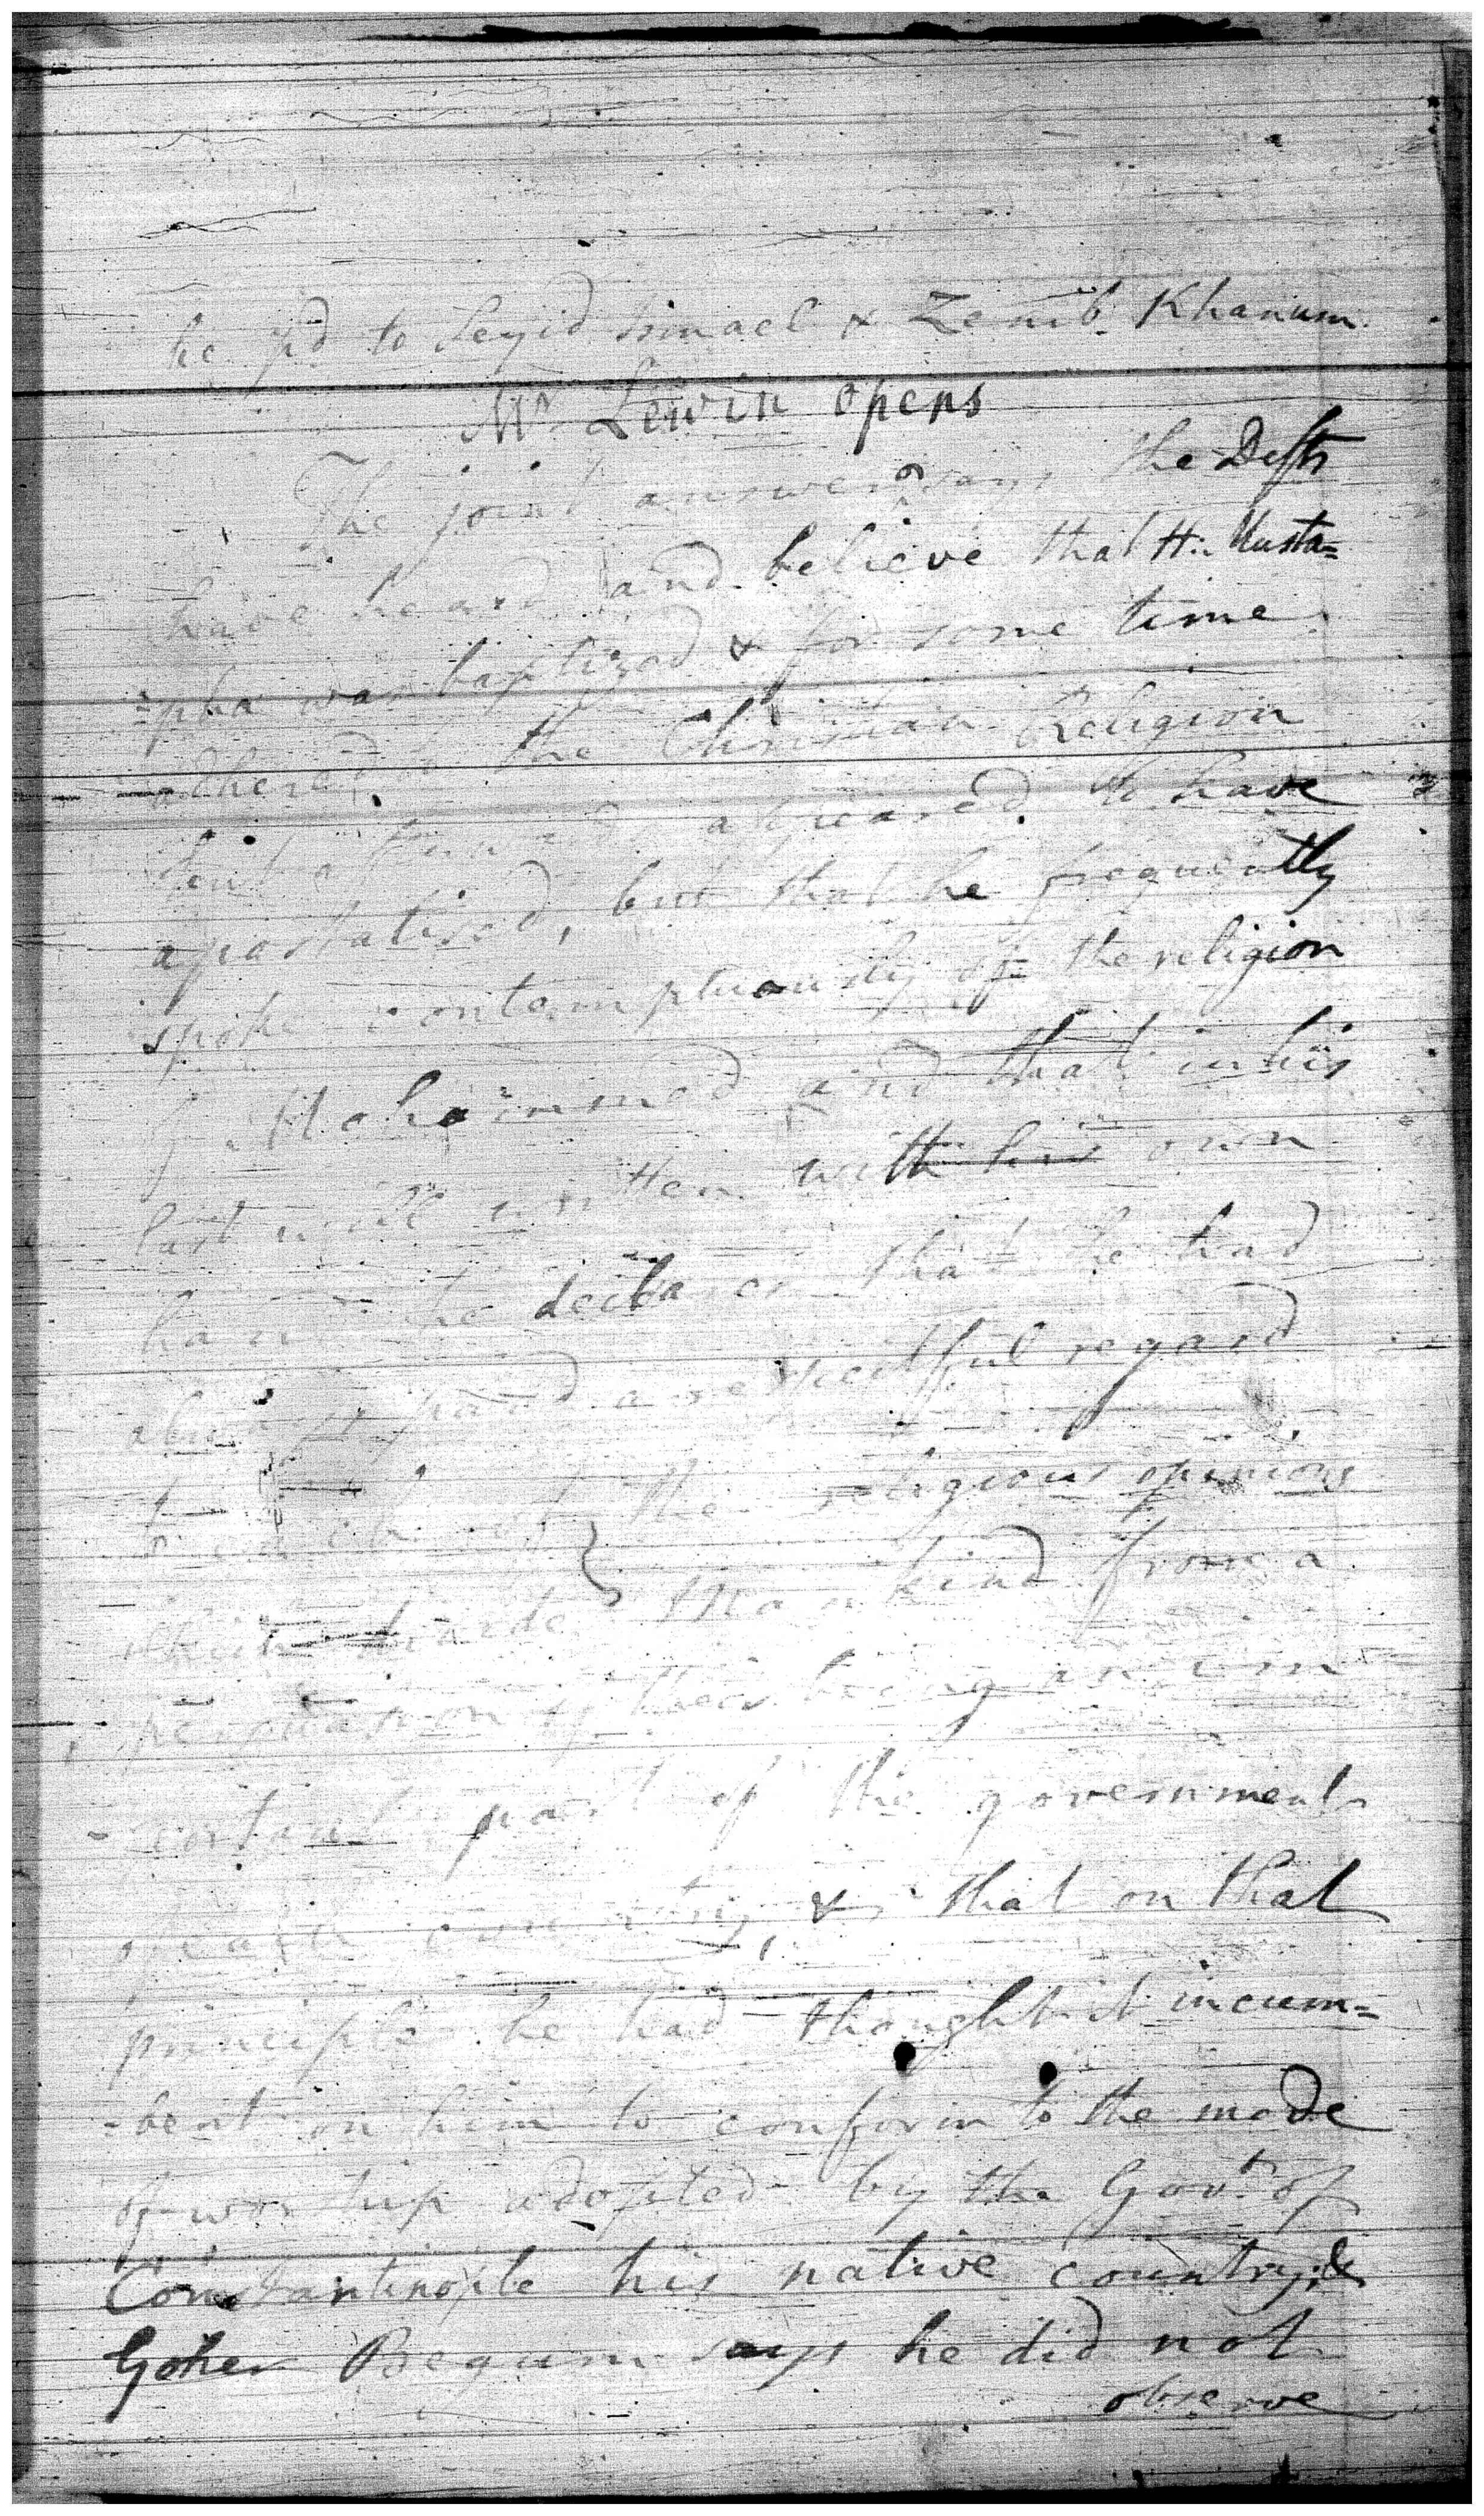 be p'd to Seyid Ismael & Zenib Khanum
Mr Lewin opens
The joint answer says the Defts
have heard and believe that H. Musta=
=pha was baptized & for some time
adhered to the Christian Religion
but afterwards appeared to have
apostatised, but that he frequently
spoke contemptuously of the religion
of Mohammed and that in his
last will written with his own
hand he declares that he had
always paid a respectful regard
to the religious opinions
which divide Mankind from a
persuasion of their being an im
-portant part of the government
of each country, & that on that
principle he had thought it incum=
=bent on him to conform to the mode
of worship adopted by the Govt. of
Constantinople his native country, &
Goher Begum says he did not
observe